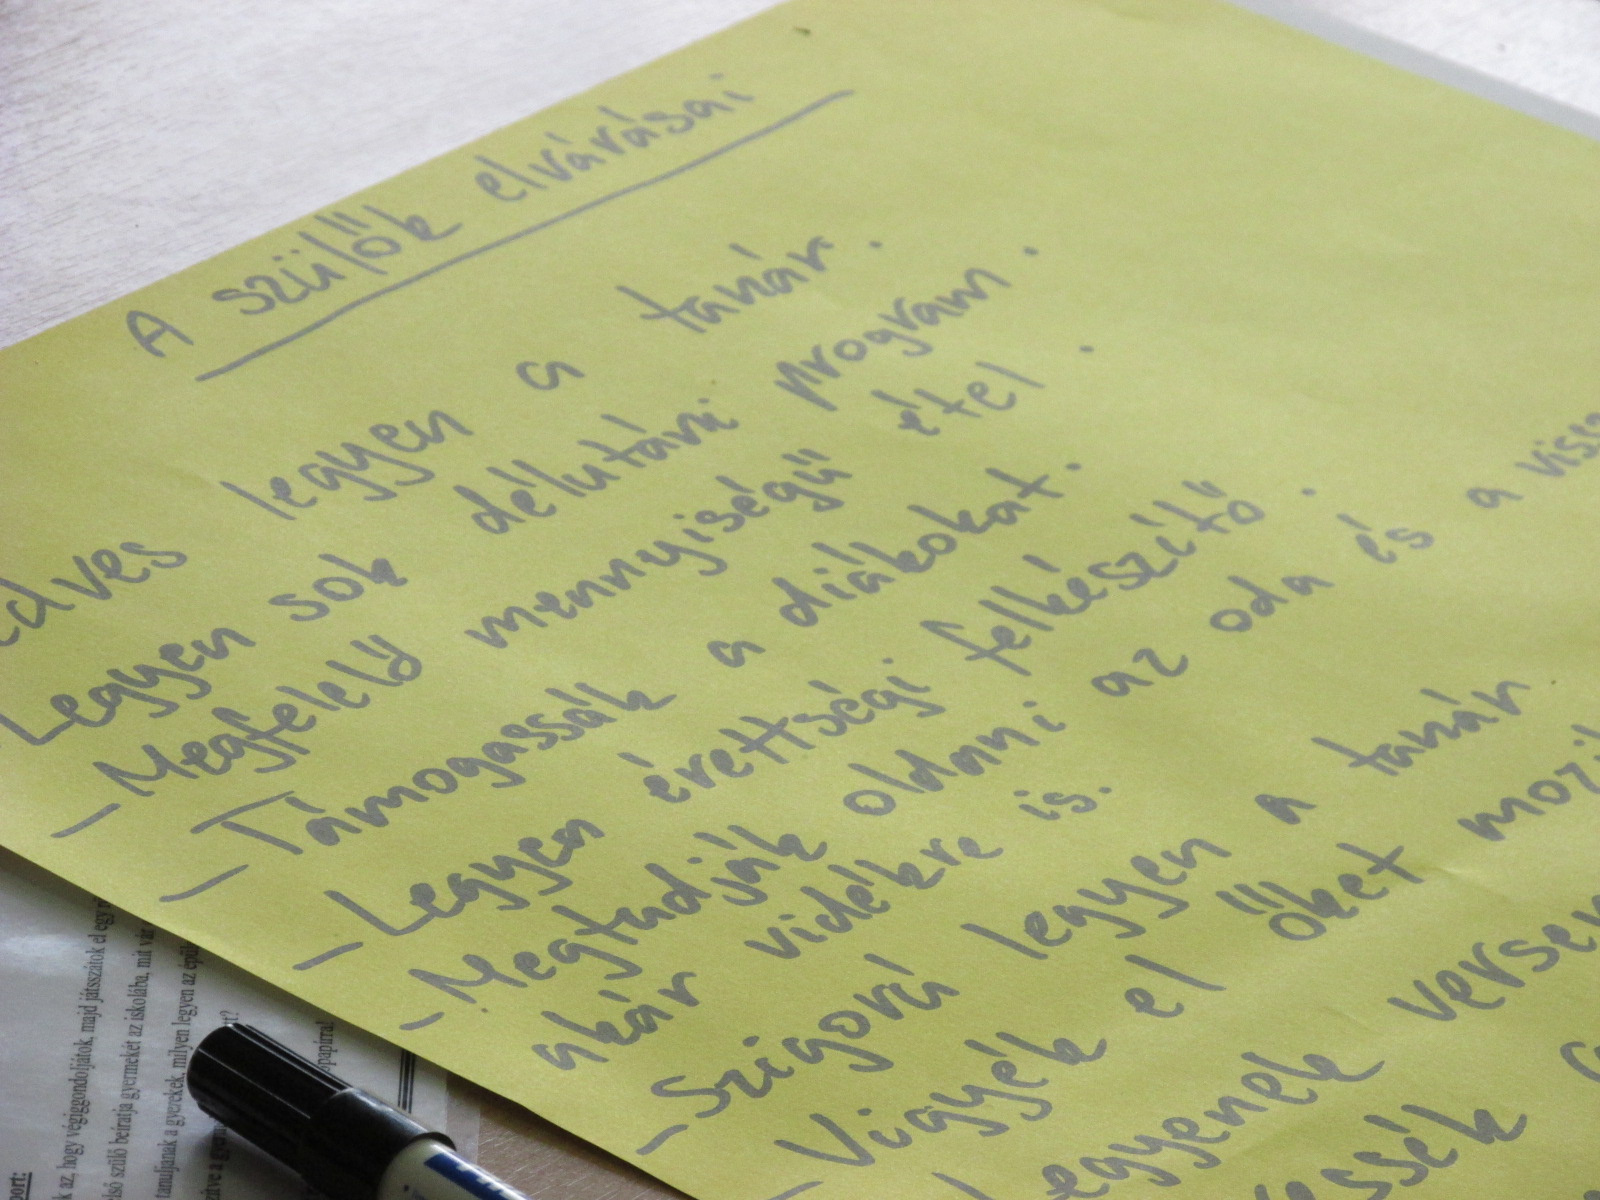 A szülők elvárásai
legyen a tanár.
Legyen sok délutáni program.
- Megfelelő mennyiségű étel.
- Támogassák a diákokat.
- Legyen érettségi felkészítő.
- Megtudják oldani az oda és a
akár vidékre is.
- Szigorú legyen a tanár
Vigyék el őket
az, hogy végiggondoljátok, majd játsszátok el egy
szülő beíratja gyermekét az iskolába, mit vár
tanuljanak a gyerekek, milyen legyen az